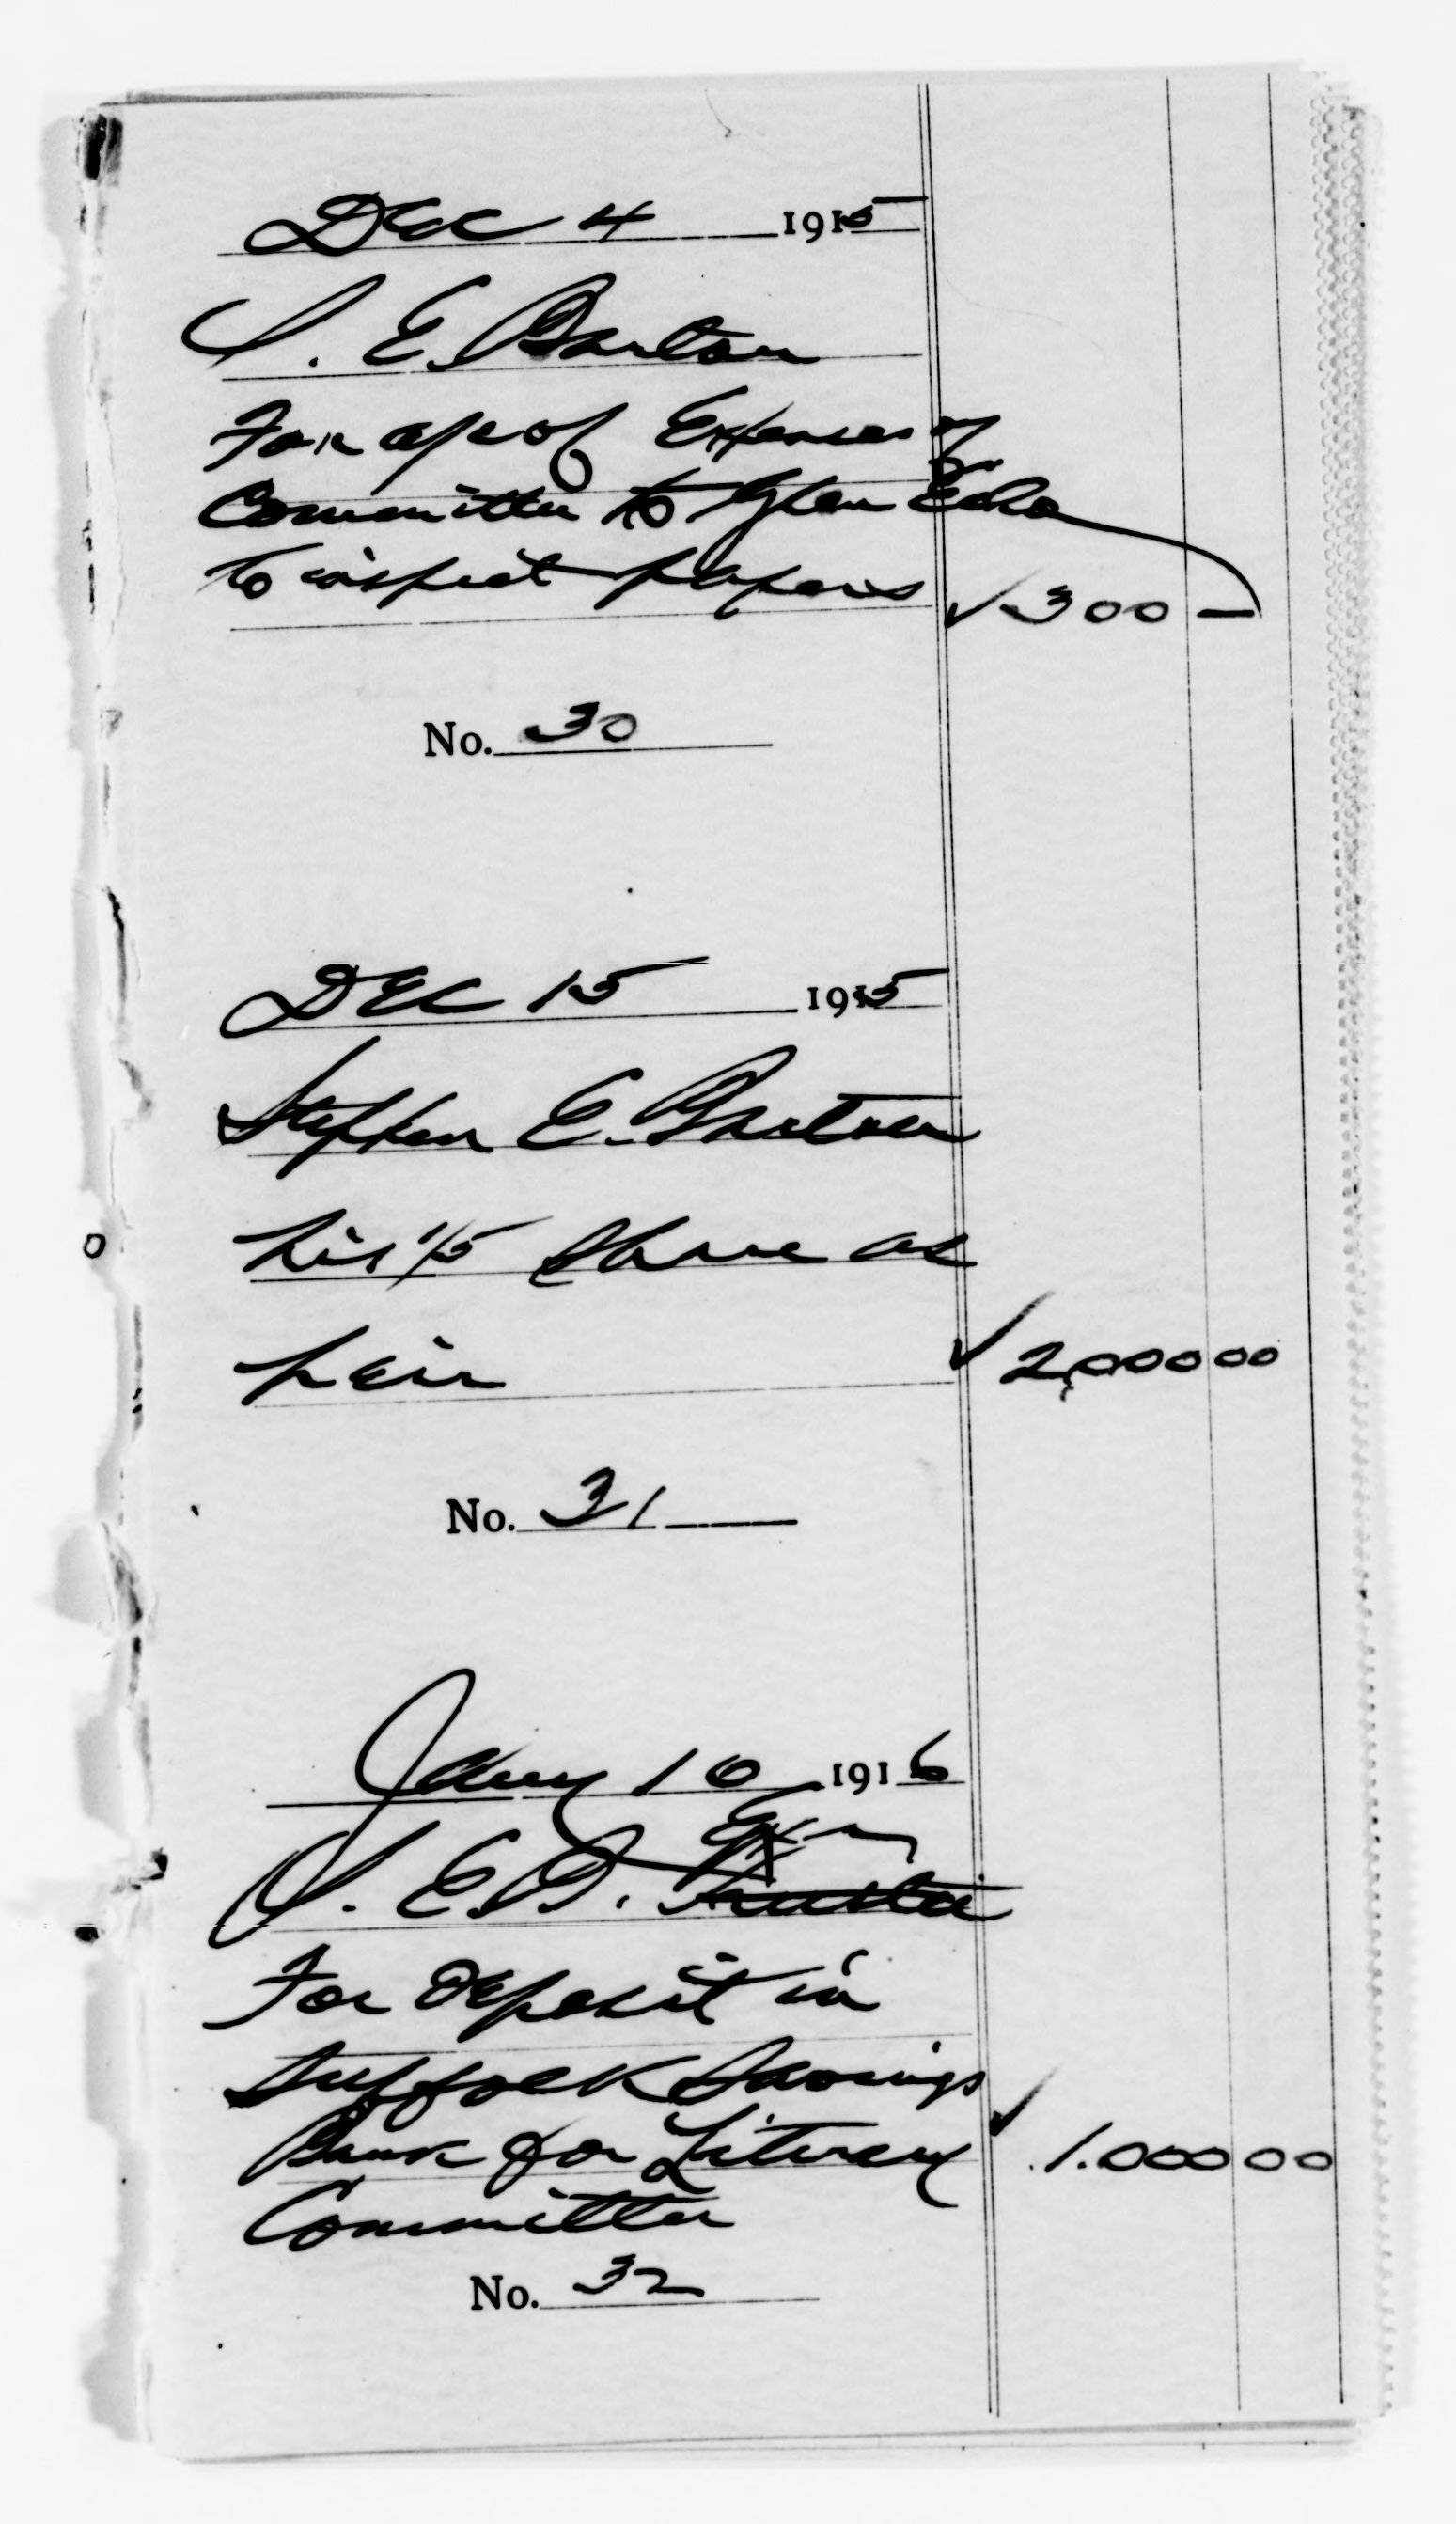 Dec 4 1915
S. E. Barton
For a/c of Expenses of
Committee to Glen Echo
to inspect papers ✓ 300 —
No. 30
Dec 15 1915
Stephen E. Barton
his 1/5 share as
heir ✓ 2,000 00
No. 31
Jany 10 1916
Ex
S. E. B. Trustee
For deposit in
Suffolk Savings
Bank for Literary ✓ 1.000 00
Committee
No. 32